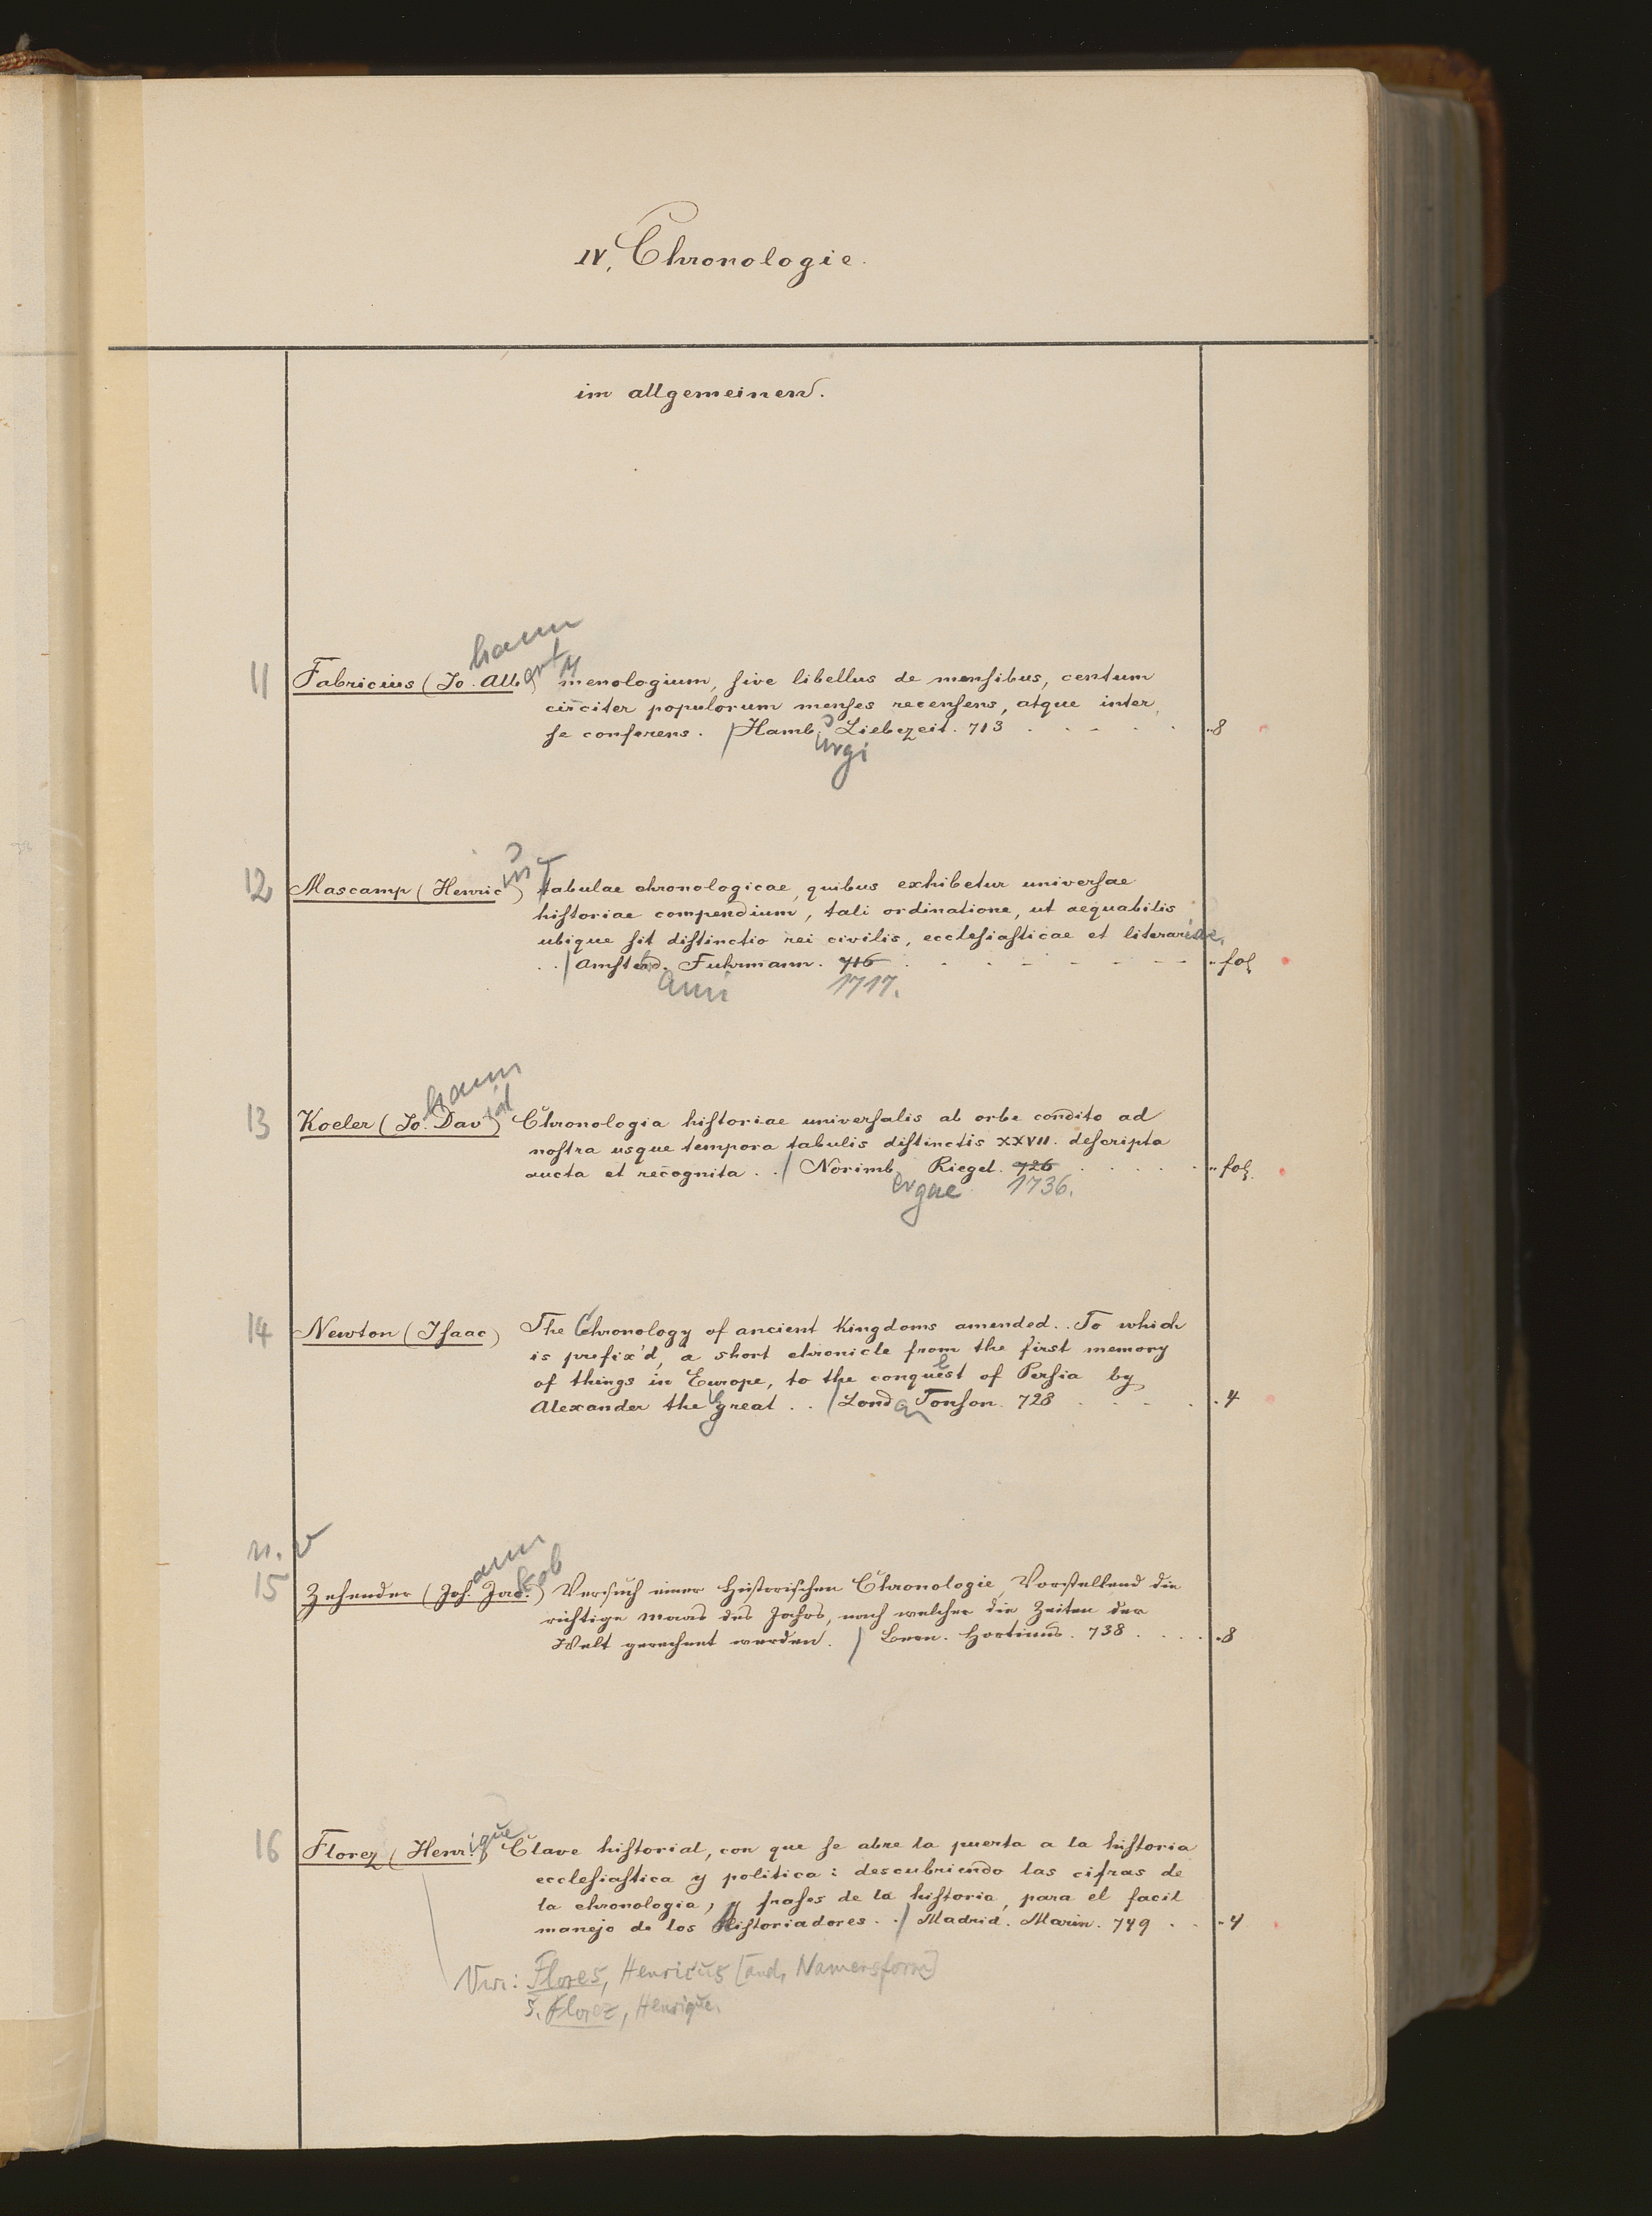 IV, Chronologie.
im allgemeinen.
hann
11 Fabricius (Jo. Alb.ert) M menologium, sive libellus de mensibus, centum
circiter populorum menses recensens, atque inter
se conferens. / Hamb. Liebezeit. 713 . . . . . 8
urgi
12 Mascamp (Henric us) T tabulae chronologicae, quibus exhibetur universae
historiae compendium, tali ordinatione, ut aequabilis
ubique sit distinctio rei civilis, ecclesiasticae et literariae.
. . / Amsterd. Fuhrmann. 716 . - . - . - - - - „ fol
ami 1717.
hann
13 Koeler (Jo. Dav id) Chronologia historiae universalis ab orbe condito ad
nostra usque tempora tabulis distinctis XXVII. descripta
aucta et recognita . . / Norimb. Riegel. 726 . . . . . „ fol.
ergae 1736.
14 Newton (Isaac) The Chronology of ancient Kingdoms amended. . To which
is prefix'd, a short chronicle from the first memory
of things in Europe, to the conquest of Persia by
Alexander the great . . / Lond on Tonson. 728 . . . . . 4
n. v
ann
15 Zehender (Joh. Jac. kob) Versuch einer historischen Chronologie, Vorstellend die
richtige Maas des Jahrs, nach welcher die Zeiten der
Welt gerechnet werden. / Bern. Hortinus. 738 . . . . 8
16 Florez (Henr. ique) Clave historial, con que se abre la puerta a la historia
ecclesiastica y politica: descubriendo las cifras de
la chronologia, y frases de la historia, para el facil
manejo de los Historiadores . . / Madrid. Marin. 749 . . „ 4
Vw.: Flores, Henricus [and. Namensform]
s. Florez, Henrique.